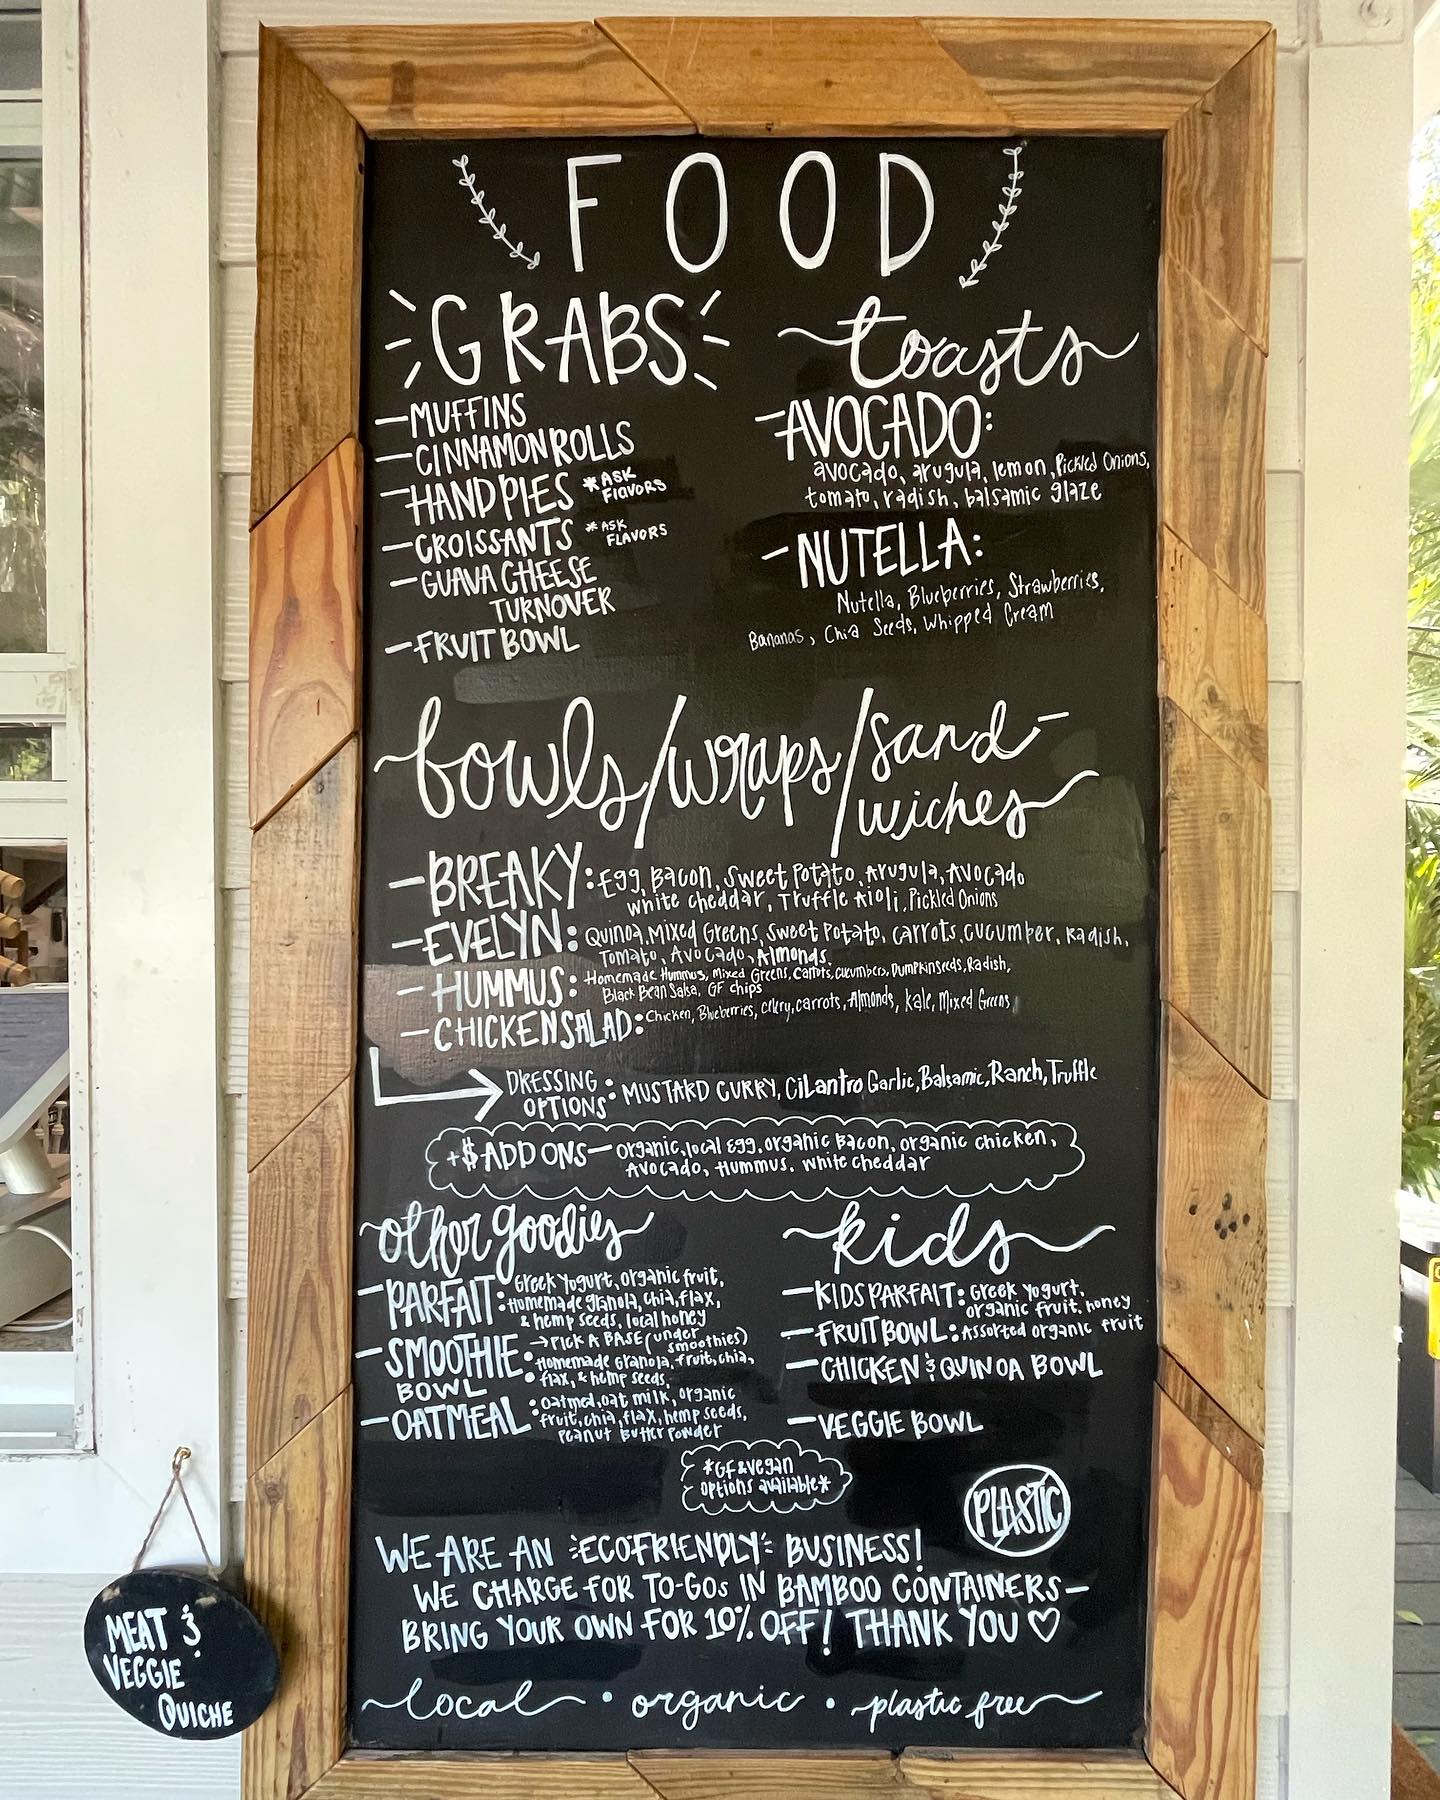 FOOD
GRABS
—MUFFINS
—CINNAMON ROLLS
—HAND PIES *ASK
FlAVORS
—CROISSANTS *ASK
FLAVORS
—GUAVA CHEESE
TURNOVER
—FRUIT BOWL
toasts
—AVOCADO:
avocado, arugula, lemon, Pickled Onions,
tomato, radish, balsamic glaze
—NUTELLA:
Nutella, Blueberries, Strawberries,
Bananas, Chia Seeds, Whipped Cream
bowls/wraps/sand-
wiches
—BREAKY: Egg, Bacon, Sweet Potato, Arugula, Avocado
white cheddar, Truffle Aioli, Pickled Onions
—EVELYN: Quinoa, Mixed Greens, Sweet Potato, carrots, cucumber, Radish,
Tomato, Avocado, Almonds.
—HUMMUS: Homemade Hummus, Mixed Greens, Carrots, cucumbers, Pumpkinseeds, Radish,
Black Bean Salsa, GF chips
—CHICKEN SALAD: Chicken, Blueberries, celery, carrots, Almonds, kale, Mixed Greens
DRESSING
OPTIONS: MUSTARD CURRY, Cilantro Garlic, Balsamic, Ranch, Truffle
+$ ADD ONS— organic, local Egg, organic Bacon, organic chicken,
Avocado, Hummus, white cheddar
other goodies
—PARFAIT: Greek Yogurt, organic fruit,
Homemade granola, chia, flax,
& hemp seeds, local honey
—SMOOTHIE → PICK A BASE (under
smoothies)
BOWL: Homemade Granola, fruit, chia,
flax, & hemp seeds.
—OATMEAL: oatmeal, oat milk, organic
fruit, chia, flax, hemp seeds,
Peanut Butter Powder
kids
—KIDS PARFAIT: Greek Yogurt,
organic fruit, honey
—FRUIT BOWL: Assorted organic fruit
—CHICKEN & QUINOA BOWL
—VEGGIE BOWL
*GF & vegan
options available*
PLASTIC
WE ARE AN ECOFRIENDLY BUSINESS!
WE CHARGE FOR TO-GOs IN BAMBOO CONTAINERS—
BRING YOUR OWN FOR 10% OFF! THANK YOU ♡
local • organic • plastic free
MEAT &
VEGGIE
QUICHE